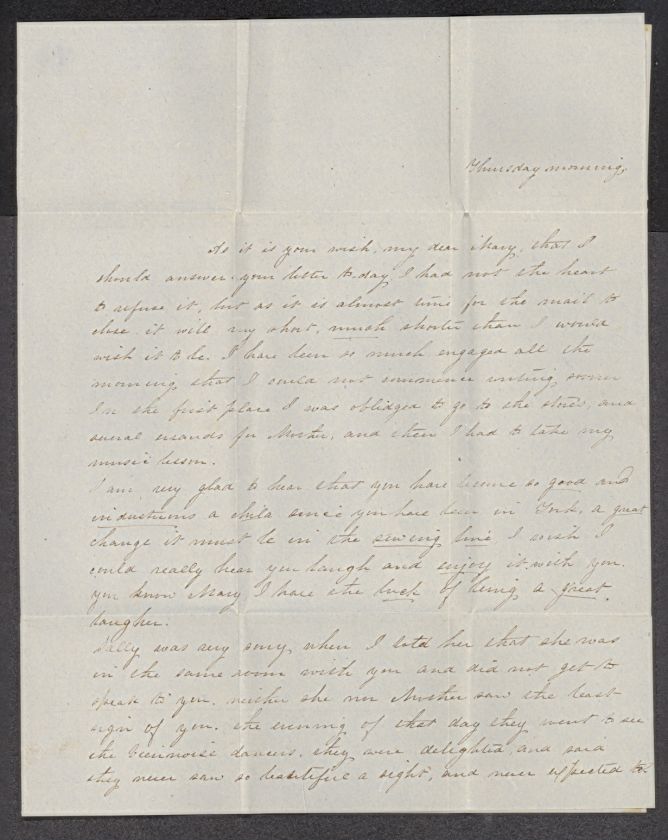 Thursday morning,
As it is your wish, my dear Mary, that I
should answer your letter to-day, I had not the heart
to refuse it, but as it is almost time for the mail to
close it will my short, much shorter than I would
wish it to be. I have been so much engaged all the
morning that I could not commence writing sooner
In the first place I was oblidged to go to the stores, and
several errands for Mother, and then I had to take my
music lesson.
I am very glad to hear that you have become so good and
industrious a child since you have been in York, a great
change it must be in the sewing line, I wish I
could really hear you laugh and enjoy it with you.
you know Mary I have the luck of being a great
laugher.
Sally was very sorry when I told her that she was
in the same room with you and did not get to
speak to you. neither she nor Mother saw the least
sign of you. the evening of that day they went to see
the Viennoise dancers. they were delighted, and said
they never saw so beautiful a sight, and never expected to